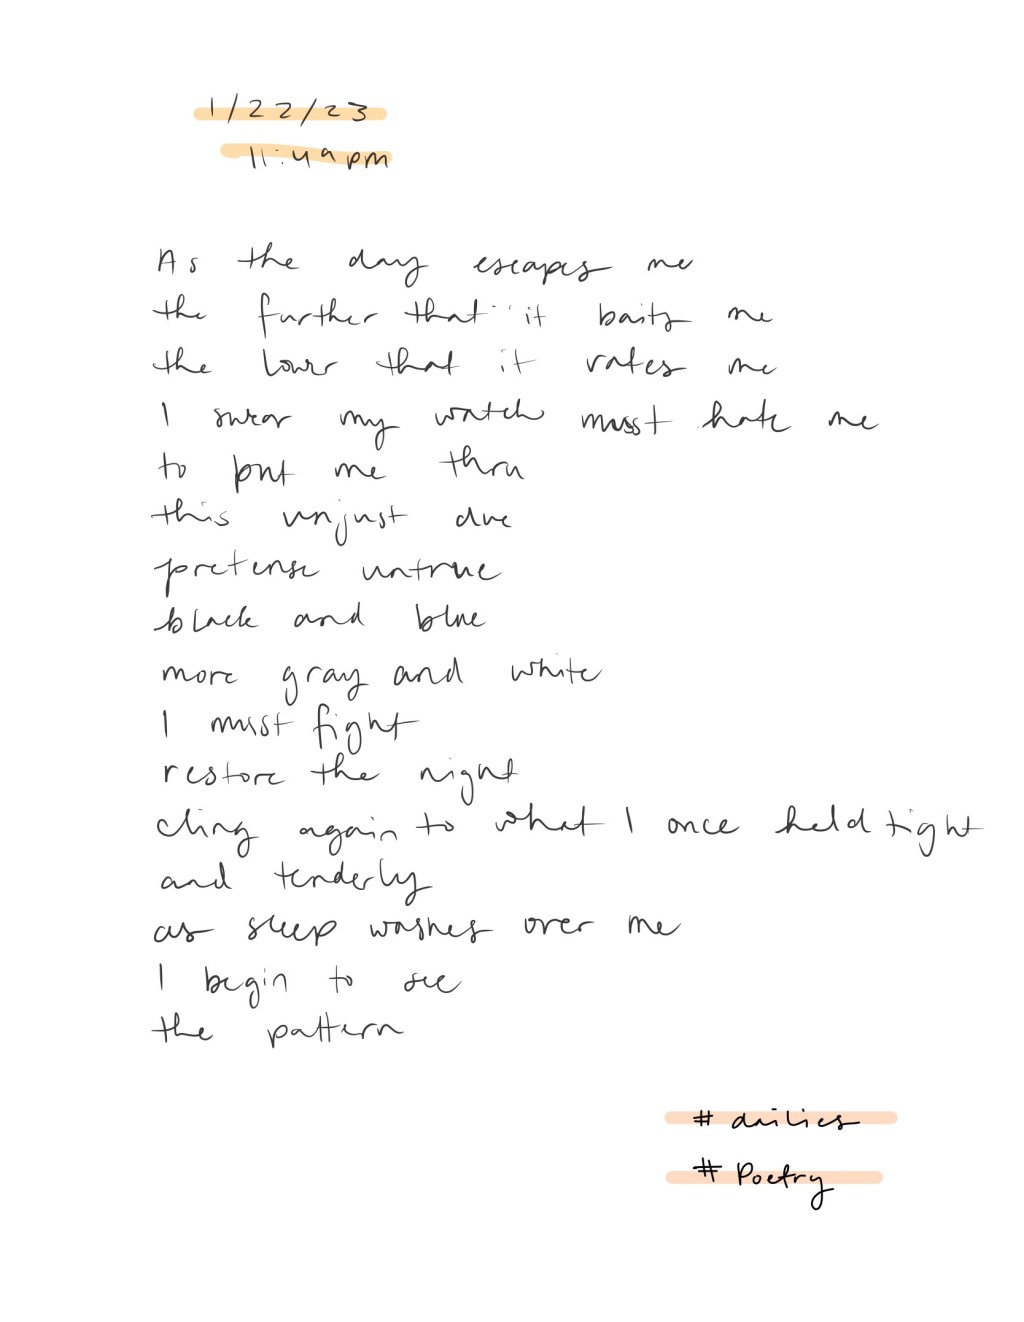 1/22/23
11:49pm
As the day escapes me
the further that it baits me
the lower that it rates me
I swear my watch must hate me
to put me thru
this unjust due
pretense untrue
black and blue
more gray and white
I must fight
restore the night
cling again to what I once held tight
and tenderly
as sleep washes over me
I begin to see
the pattern
# dailies
# Poetry